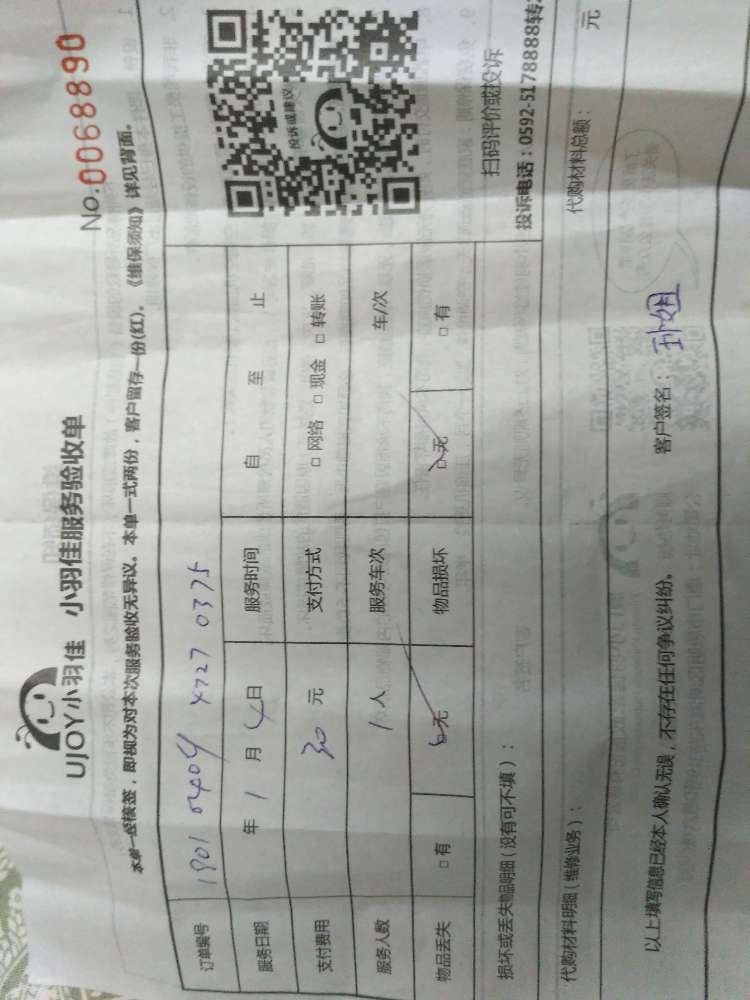 UJOY小羽佳 小羽佳服务验收单
No.0068890
本单一经核签，即视为对本次服务验收无异议。本单一式两份，客户留存一份(红)。《维保须知》详见背面。
订单编号 1901 0404 4727 0375
服务日期 年 1 月 4 日 服务时间 自 至 止
支付费用 30 元 支付方式 □ 网络 □ 现金 □ 转账
服务人数 1 人 服务车次 车/次
物品丢失 □ 有 □ 无 物品损坏 □ 无 □ 有
投诉或建议
扫码评价或投诉
投诉电话：0592-5178888转
损坏或丢失物品明细（没有可不填）：
代购材料明细（维修业务）： 代购材料总额： 元
以上填写信息已经本人确认无误，不存在任何争议纠纷。 客户签名： 孙姐